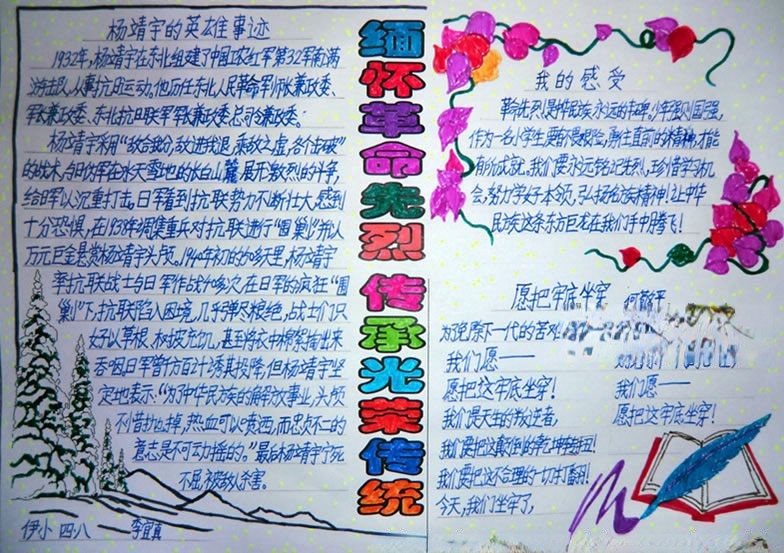 杨靖宇的英雄事迹
1932年,杨靖宇在东北组建了中国工农红军第32军南满
游击队,从事抗日运动。他历任东北人民革命军师长兼政委、
军长兼政委、东北抗日联军军长兼政委总司令兼政委。
杨靖宇采用“敌合我分,敌进我退,乘敌之虚,各个击破”
的战术,与日伪军在冰天雪地的长白山麓,展开激烈的斗争,
给日军以沉重打击。日军看到抗联势力不断壮大,感到
十分恐惧,在1938年调集重兵对抗联进行“围巢”,并以
万元巨金悬赏杨靖宇头颅。1940年初的
率抗联战士与日军作战 在日军的疯狂“围
巢”下,抗联陷入困境,几乎弹尽粮绝,战士们只
好以草根、树皮充饥,甚至将衣中棉絮掏出来
吞咽,日军曾千方百计诱其投降,但杨靖宇坚
定地表示:“为了中华民族的解放事业,头颅
不惜抛掉,热血可以喷洒,而忠贞不二的
意志是不可动摇的。”最后杨靖宇宁死
不屈,被敌人杀害。
伊小 四.八 李宜真
缅怀革命先烈 传承光荣传统
我的感受
革命先烈是中华民族永远的丰碑。少年强则国强,
作为一名小学生,要有不畏艰险,勇往直前的精神,才能
有所成就。我们要永远铭记先烈,珍惜学习机
会,努力学好本领,弘扬民族精神!让中华
民族这条东方巨龙在我们手中腾飞!
愿把牢底坐穿 何敬平
为了免除下一代的苦难
我们愿——
愿把这牢底坐穿!
我们是天生的叛逆者,
我们要把这颠倒的乾坤扭转!
我们要把这不合理的一切打翻!
今天,我们坐牢了,
我们愿——
愿把这牢底坐穿!